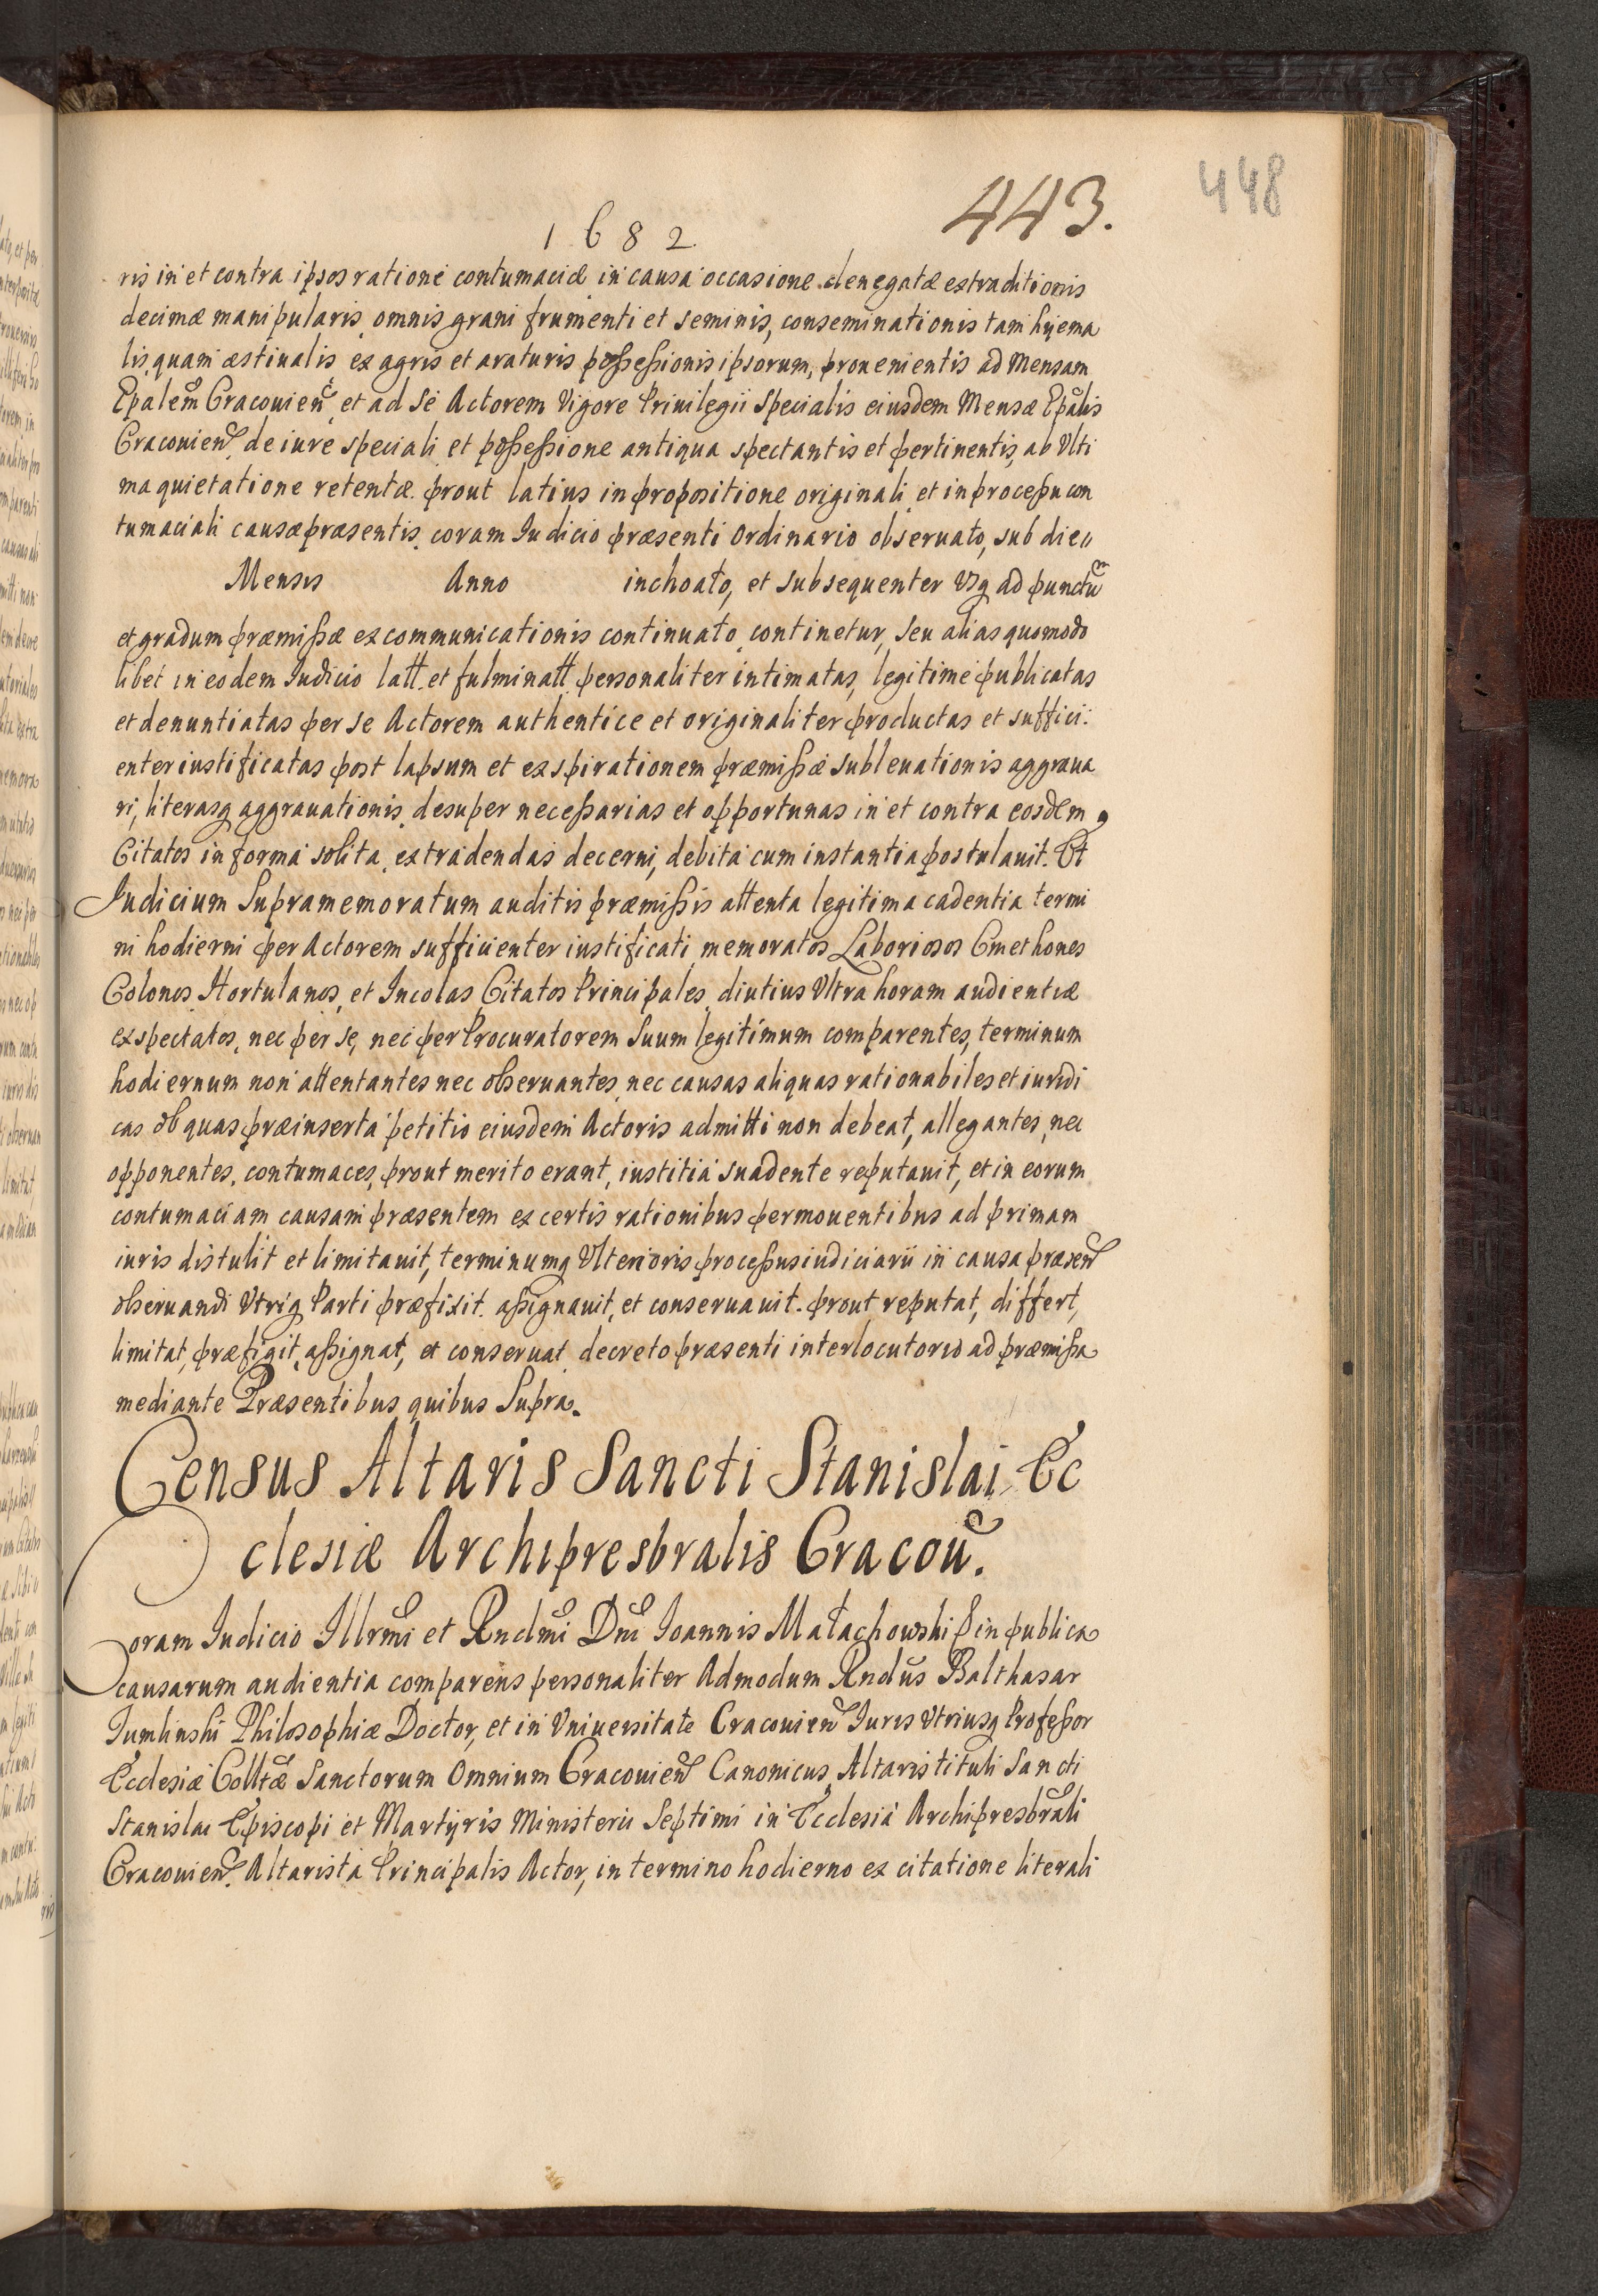 448
443.
1682
ris in et contra ipsos ratione contumaciæ in causa occasione denegatæ extraditionis
decimæ manipularis omnis grani frumenti et seminis, conseminationis tam hyema
lis quam æstiualis ex agris et araturis possessionis ipsorum, prouenientis ad Mensam
Epalem Cracouien, et ad se Actorem Vigore Priuilegii specialis eiusdem Mensæ Epalis
Cracouien de iure speciali et possessione antiqua spectantis et pertinentis, ab Vlti
ma quietatione retentæ. prout latius in propositione originali et in processu con
tumaciali causæ præsentis coram Iudicio præsenti Ordinario obseruato, sub die
Mensis Anno inchoato, et subsequenter Vsq ad punctum
et gradum præmissæ excommunicationis continuato continetur, seu alias quomodo
libet in eodem Iudicio latt. et fulminatt. personaliter intimatas, legitime publicatas
et denuntiatas per se Actorem authentice et originaliter productas et suffici:
enter iustificatas post lapsum et exspirationem præmissæ subleuationis aggraua
ri, literasq aggrauationis desuper necessarias et opportunas in et contra eosdem
Citatos in forma solita extradendas decerni, debita cum instantia postulauit. Et
Iudicium Supramemoratum auditis præmissis attenta legitima cadentia termi
ni hodierni per Actorem sufficienter iustificati memoratos Laboriosos Cmethones
Colonos Hortulanos, et Incolas Citatos Principales diutius Vltra horam audientiæ
exspectatos, nec per se, nec per Procuratorem Suum legitimum comparentes, terminum
hodiernum non attentantes nec obseruantes nec causas aliquas rationabiles et iuridi
cas ob quas præinserta petitio eiusdem Actoris admitti non debeat, allegantes, nec
opponentes, contumaces, prout merito erant, iustitia suadente reputauit, et in eorum
contumaciam causam præsentem ex certis rationibus permouentibus ad primam
iuris distulit et limitauit, terminumq Vlterioris processus iudiciarii in causa præsen
obseruandi Vtriq Parti præfixit. assignauit, et conseruauit. prout reputat, differt,
limitat, præfigit, assignat, et conseruat decreto præsenti interlocutorio ad præmissa
mediante Præsentibus quibus Supra.
Census Altaris Sancti Stanislai Ec
clesiæ Archipresbralis Cracou.
Coram Iudicio Illrmi et Rndmi Dni Ioannis Małachowski in publica
causarum audientia comparens personaliter Admodum Rndus Balthasar
Tumlinski Philosophiæ Doctor, et in Vniuersitate Cracouien Iuris Vtriusq Professor
Ecclesiæ Colltæ Sanctorum Omnium Cracouien Canonicus, Altaris tituli Sancti
Stanislai Episcopi et Martyris Ministerii Septimi in Ecclesia Archipresbrali
Cracouien. Altarista Principalis Actor, in termino hodierno ex citatione literali